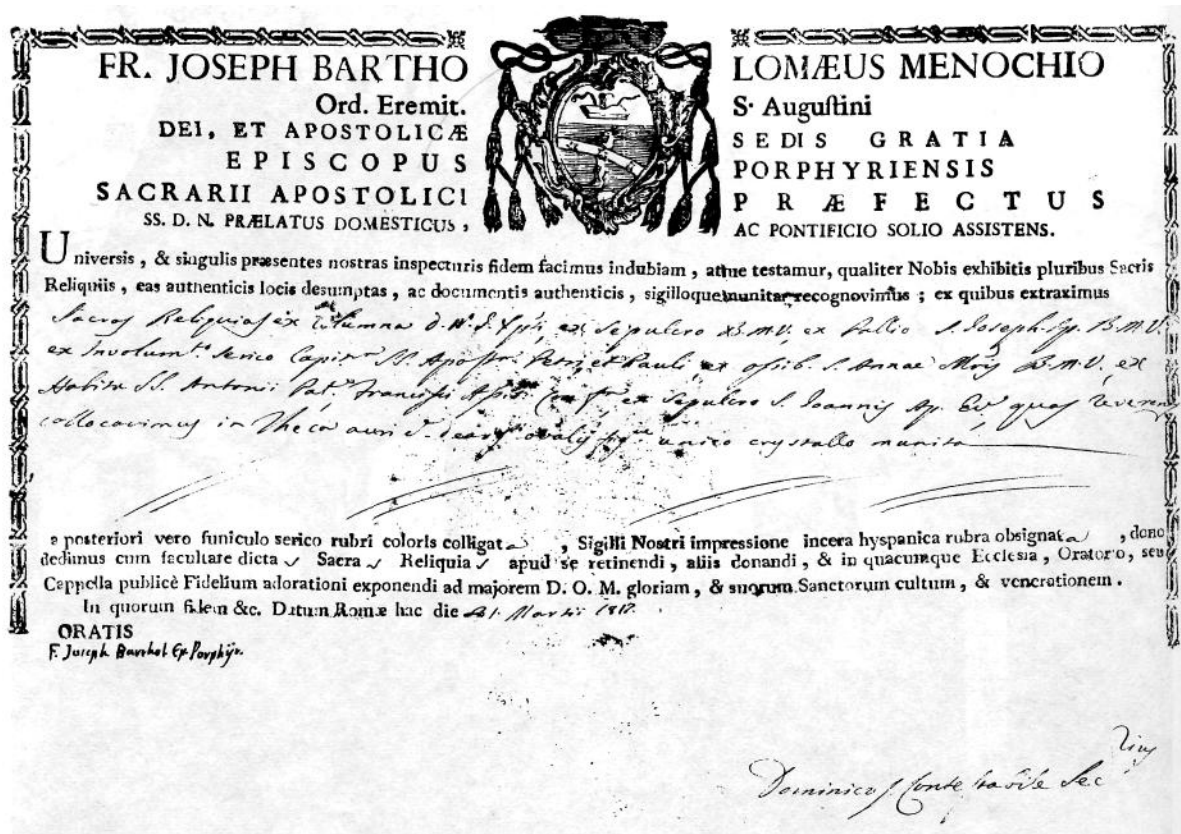 FR. JOSEPH BARTHO LOMÆUS MENOCHIO
Ord. Eremit. S. Auguſtini
DEI, ET APOSTOLICÆ SEDIS GRATIA
EPISCOPUS PORPHYRIENSIS
SACRARII APOSTOLICI PRÆFECTUS
SS. D. N. PRÆLATUS DOMESTICUS, AC PONTIFICIO SOLIO ASSISTENS.
Universis, & singulis præsentes nostras inspecturis fidem facimus indubiam, atque testamur, qualiter Nobis exhibitis pluribus Sacris
Reliquiis, eas authenticis locis desumptas, ac documentis authenticis, sigilloque munitas recognovimus; ex quibus extraximus
Sacras Reliquias ex Columna D. N. J. ex Sepulcro B.M.V. ex Pallio S. Joseph. Sp. B.M.V.
ex Serico SS. Petri, et Pauli, ex ossib. S. Annae B.M.V., ex
Habitu SS. Antonii Francisci ex Sepulcro S. Joannis Ap. Ev. quas
collocavimus in Theca unico crystallo munita
a posteriori vero funiculo serico rubri coloris colligata, Sigilli Nostri impressione in cera hyspanica rubra obsignata, dono
dedimus cum facultate dicta Sacra Reliquia apud se retinendi, aliis donandi, & in quacumque Ecclesia, Oratorio, seu
Cappella publicè Fidelium adorationi exponendi ad majorem D. O. M. gloriam, & suorum Sanctorum cultum, & venerationem.
In quorum fidem &c. Datum Romæ hac die Martii
ORATIS
F. Joseph Barthol Ep. Porphyr.
Dominicus Sec